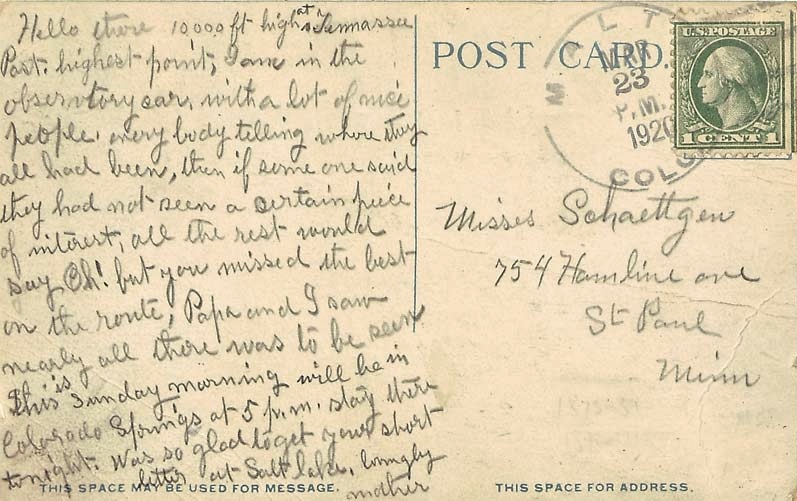 Hello there 10000 ft high at Tennassee
Past. highest point, I am in the
observatory car, with a lot of nice
people. every body telling where they
all had been, then if some one said
they had not seen a certain piece
of interest, all the rest would
say Oh! but you missed the best
on the route, Papa and I saw
nearly all there was to be seen
This is Sunday morning will be in
Colorado Springs at 5 p.m. stay there
tonight. Was so glad to get your short
letter at Salt lake. lovingly
mother
THIS SPACE MAY BE USED FOR MESSAGE.
POST CARD.
M LT
MAY
23
P.M.
1920
COLO
U.S. POSTAGE
1 CENT 1
Misses Schaettgen
754 Hamline ave
St Paul
Minn
THIS SPACE FOR ADDRESS.